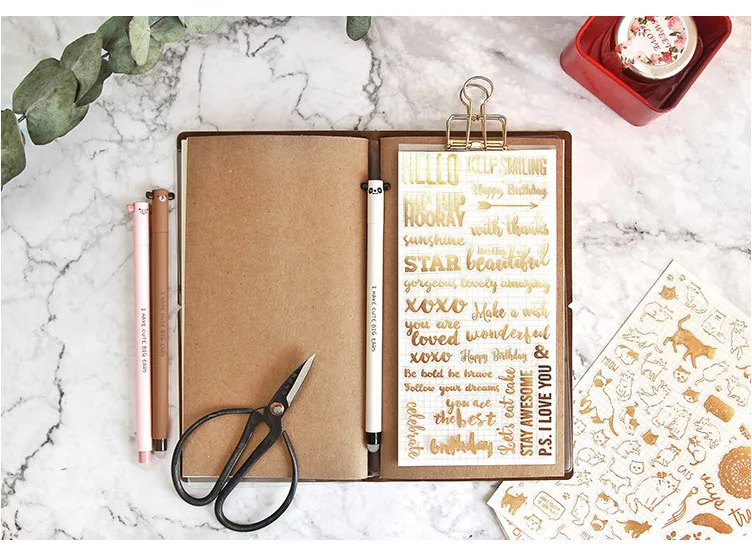 SWEET
LOVE
HELLO
KEEP SMILING
Happy Birthday
HIP HIP
HOORAY
with thanks
sunshine
hello
STAR
beautiful
gorgeous lovely amazing
xoxo
Make a wish
you are
loved
wonderful
xoxo
Happy Birthday
&
Be bold be brave
Follow your dreams
you are
the best
celebrate
birthday
Let's eat cake
STAY AWESOME
P.S. I LOVE YOU
I HAVE CUTE BIG EARS
I HAVE CUTE BIG EARS
I HAVE CUTE BIG EARS
MEOW
CATS